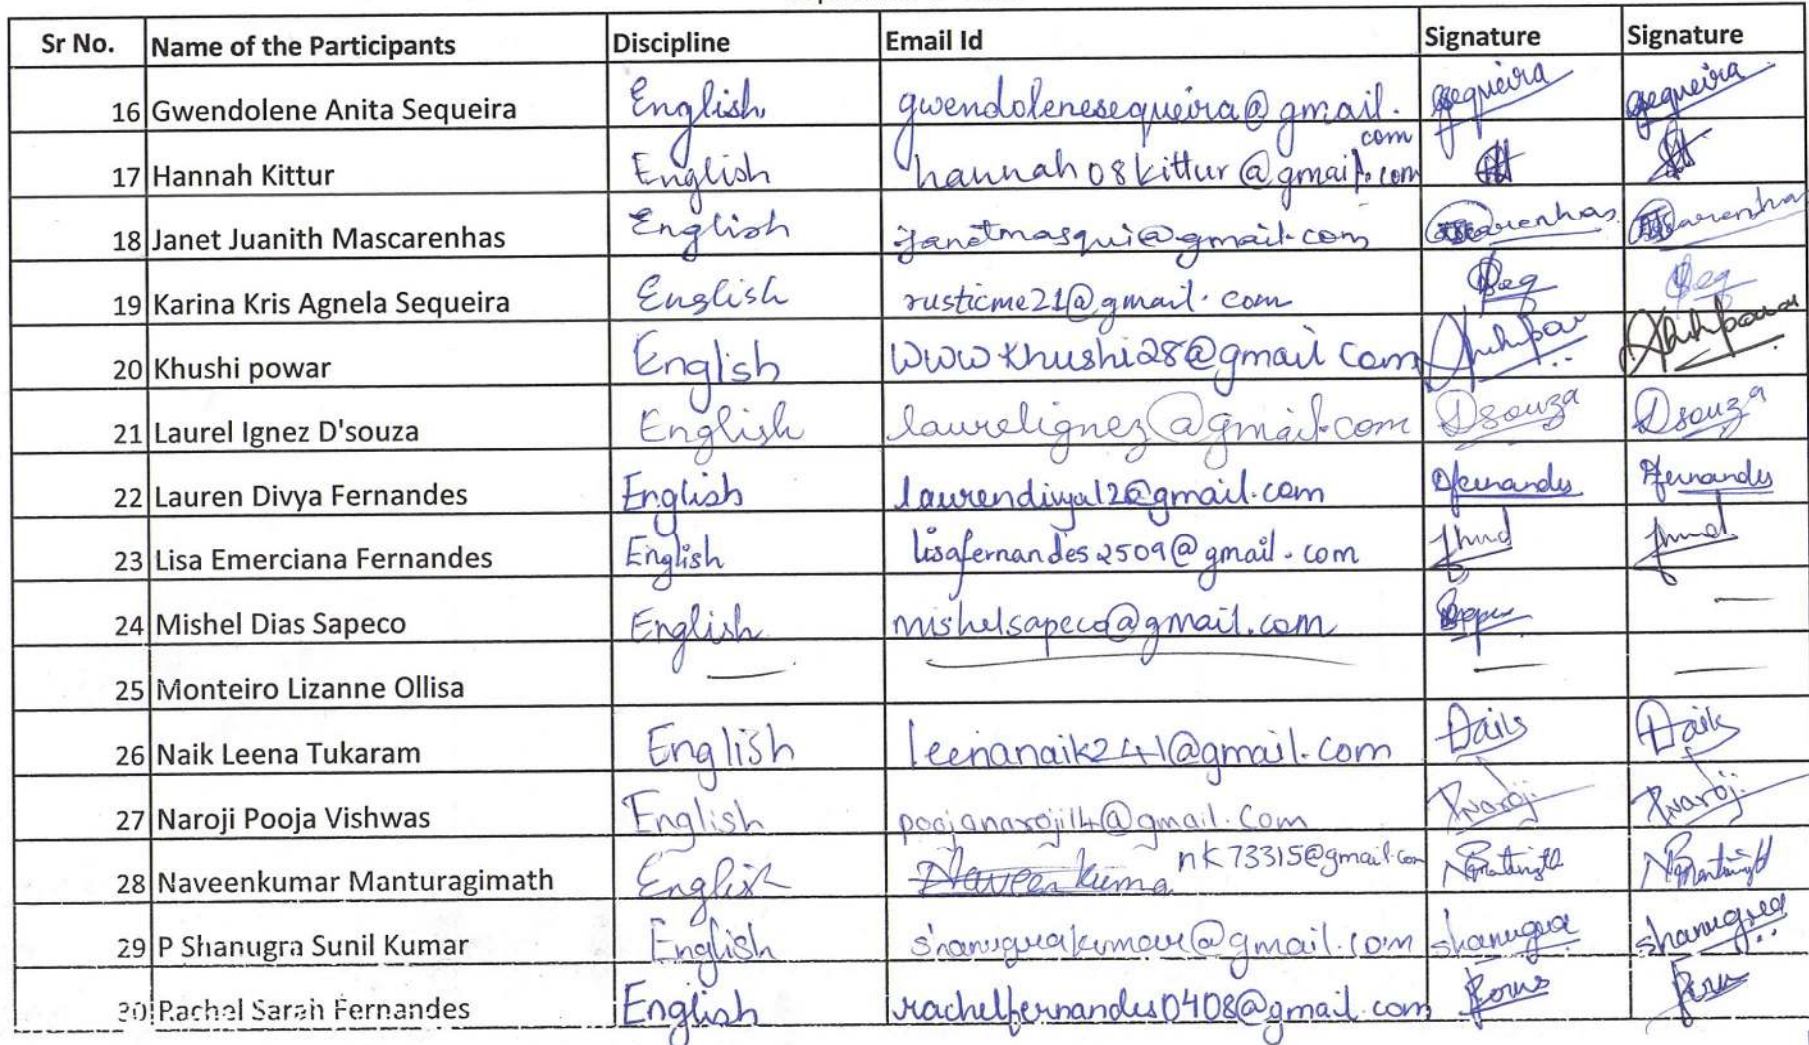 Sr No. Name of the Participants Discipline Email Id Signature Signature
16 Gwendolene Anita Sequeira English gwendolenesequeira@gmail. Sequeira Sequeira
com
17 Hannah Kittur English hannah08kittur@gmail.com
18 Janet Juanith Mascarenhas English janetmasqui@gmail.com
19 Karina Kris Agnela Sequeira English rusticme21@gmail.com Seq Seq
20 Khushi powar English wwwkhushi28@gmail com
21 Laurel Ignez D'souza English laurelignez@gmail.com Dsouza Dsouza
22 Lauren Divya Fernandes English laurendivya12@gmail.com Dfernandes Dfernandes
23 Lisa Emerciana Fernandes English lisafernandes2509@gmail.com
24 Mishel Dias Sapeco English mishelsapeco@gmail.com —
25 Monteiro Lizanne Ollisa — — — —
26 Naik Leena Tukaram English leenanaik241@gmail.com
27 Naroji Pooja Vishwas English poojanaroji14@gmail.com Pnaroji Pnaroji
28 Naveenkumar Manturagimath English Naveenkuma nk73315@gmail.com
29 P Shanugra Sunil Kumar English shanugrakumar@gmail.com shanugra shanugra
30 Rachel Sarah Fernandes English rachelfernandes0408@gmail.com